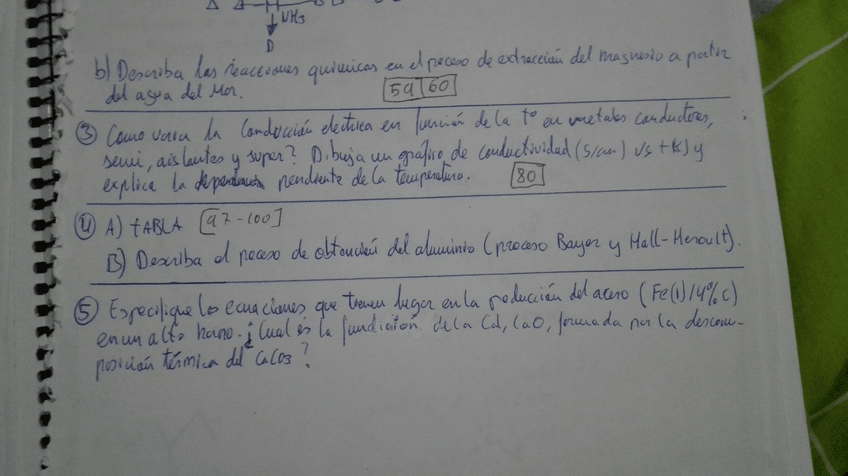 NH3
D
b) Describa las reacciones químicas en el proceso de extracción del magnesio a partir
del agua del Mar. 59 60
③ Como varia la Conducción electrica en función de la tº en metales conductores,
semi, aislantes y super? Dibuja un gráfico de conductividad (S/cm) vs t(K) y
explica la pendiente de la temperatura. 80
④ A) tABLA [97-100]
B) Describa el peceso de obtención del aluminio (proceso Bayer y Hall-Heroult).
⑤ Especifique los ecuaciones que tienen lugar en la producción del acero (Fe(l)/4% C)
en un alto horno. ¿Cual es la fundición de la Cal, CaO, formada por la descom-
posición térmica del CaCO3?